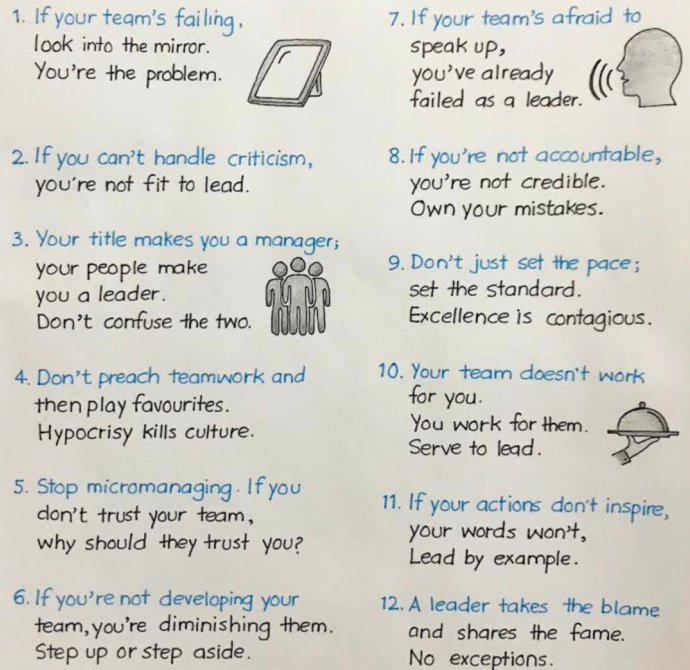 1. If your team's failing,
look into the mirror.
You're the problem.
2. If you can't handle criticism,
you're not fit to lead.
3. Your title makes you a manager;
your people make
you a leader.
Don't confuse the two.
4. Don't preach teamwork and
then play favourites.
Hypocrisy kills culture.
5. Stop micromanaging. If you
don't trust your team,
why should they trust you?
6. If you're not developing your
team, you're diminishing them.
Step up or step aside.
7. If your team's afraid to
speak up,
you've already
failed as a leader.
8. If you're not accountable,
you're not credible.
Own your mistakes.
9. Don't just set the pace;
set the standard.
Excellence is contagious.
10. Your team doesn't work
for you.
You work for them.
Serve to lead.
11. If your actions don't inspire,
your words won't,
Lead by example.
12. A leader takes the blame
and shares the fame.
No exceptions.